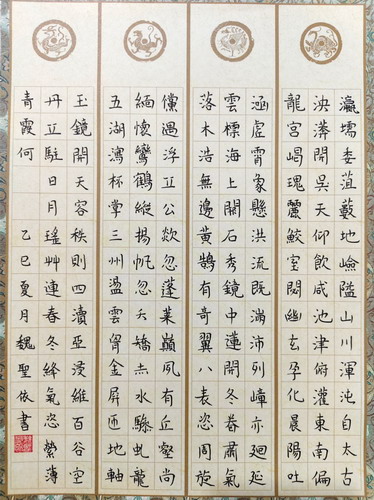 瀛壖委菹藪地嶮隘山川渾沌自太古
泱漭開吳天仰飲咸池津俯灌東南偏
龍宮嵑瑰麗鮫室閟幽玄孕化晨陽吐
涵虛霄象懸洪流既滿沛列嶂亦廻延
雲標海上開石秀鏡中蓮開冬春肅氣
落木浩無邊黃鵠有奇翼八表恣周旋
儻遇浮丘公欻忽蓬萊巔夙有丘壑尚
緬懷鸞鶴縱揚帆忽夭矯赤水驂虬龍
五湖瀉杯掌三州盪雲胷金屏匝地軸
玉鏡開天容秩則四瀆亞浸維百谷空
丹丘駐日月瑤艸連春冬絳氣恣縈薄
青霞何 乙巳夏月魏聖依書